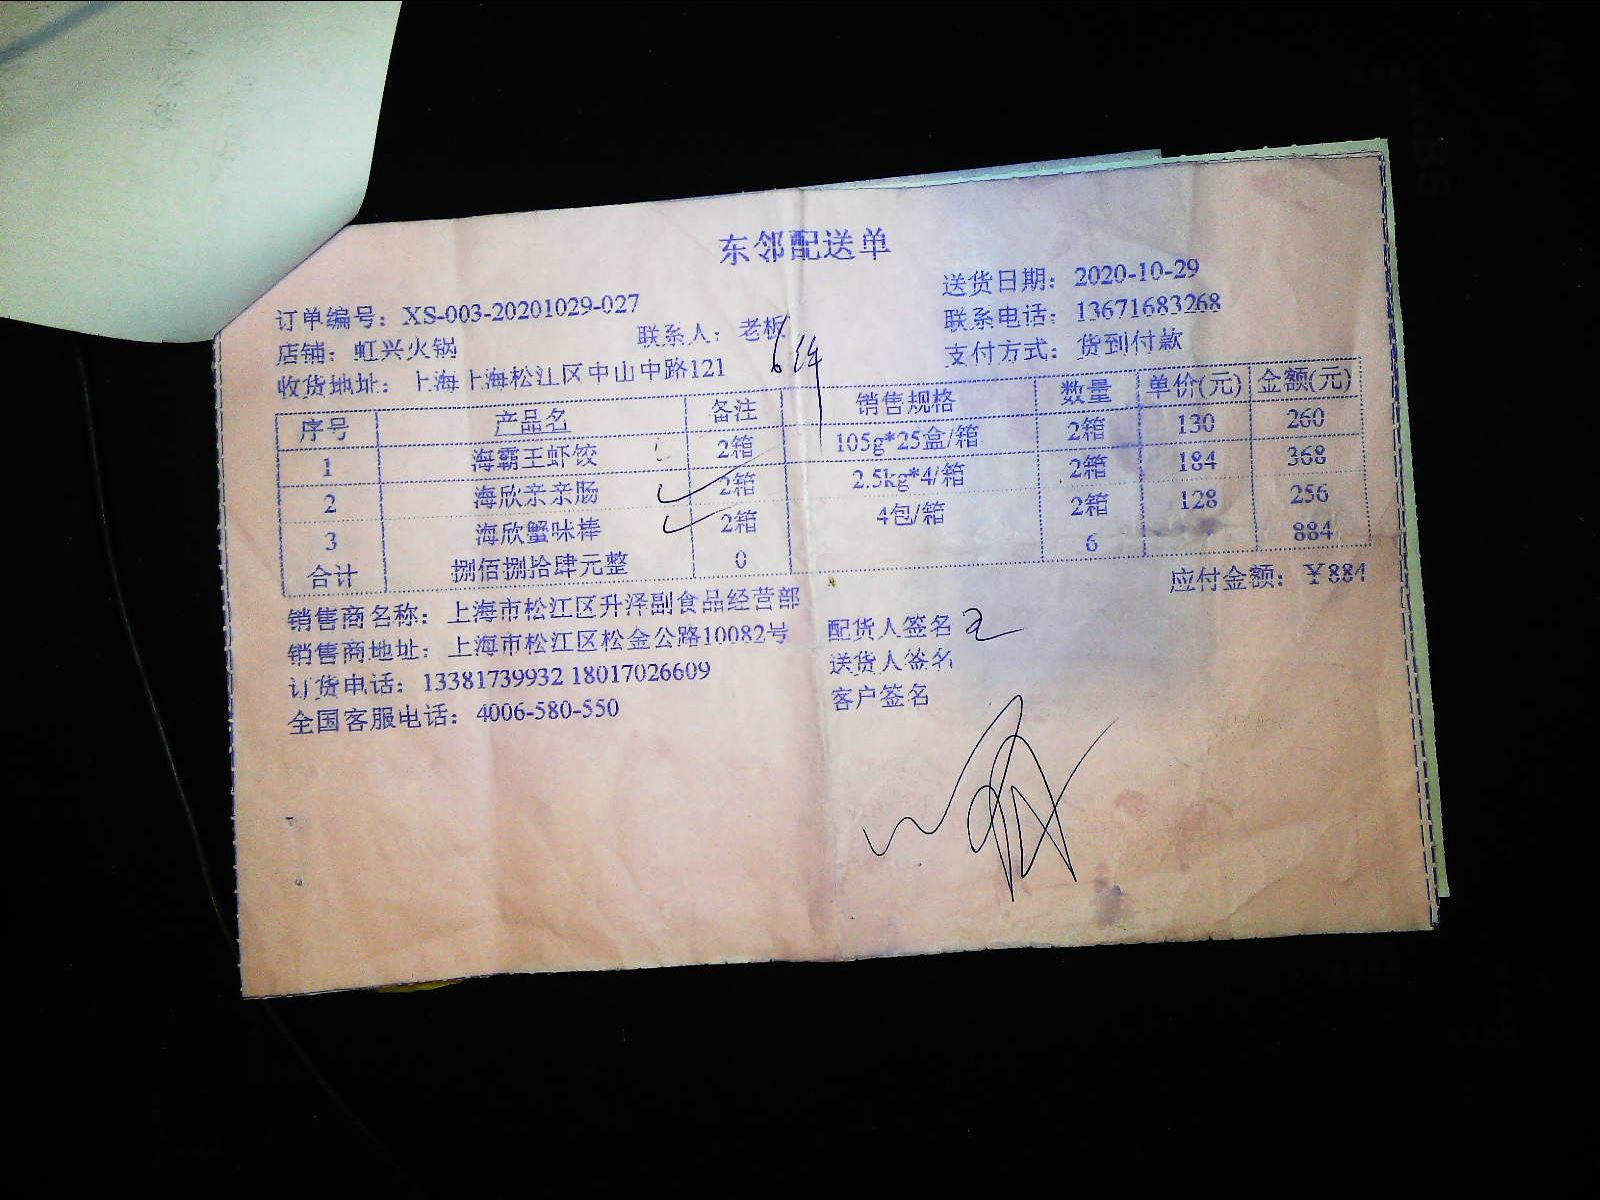 东邻配送单
订单编号：XS-003-20201029-027
送货日期：2020-10-29
店铺：虹兴火锅 联系人：老板 联系电话：13671683268
收货地址：上海上海松江区中山中路121 6件 支付方式：货到付款
序号 产品名 备注 销售规格 数量 单价(元) 金额(元)
1 海霸王虾饺 2箱 105g*25盒/箱 2箱 130 260
2 海欣亲亲肠 2箱 2.5kg*4/箱 2箱 184 368
3 海欣蟹味棒 2箱 4包/箱 2箱 128 256
合计 捌佰捌拾肆元整 0 6 884
应付金额：￥884
销售商名称：上海市松江区升泽副食品经营部
销售商地址：上海市松江区松金公路10082号
订货电话：13381739932 18017026609
全国客服电话：4006-580-550
配货人签名
送货人签名
客户签名